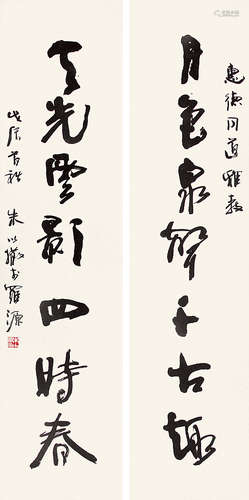 惠德同道雅教
月色泉聲千古趣
天光雲影四時春
戊辰首秋 朱以撒于羅源